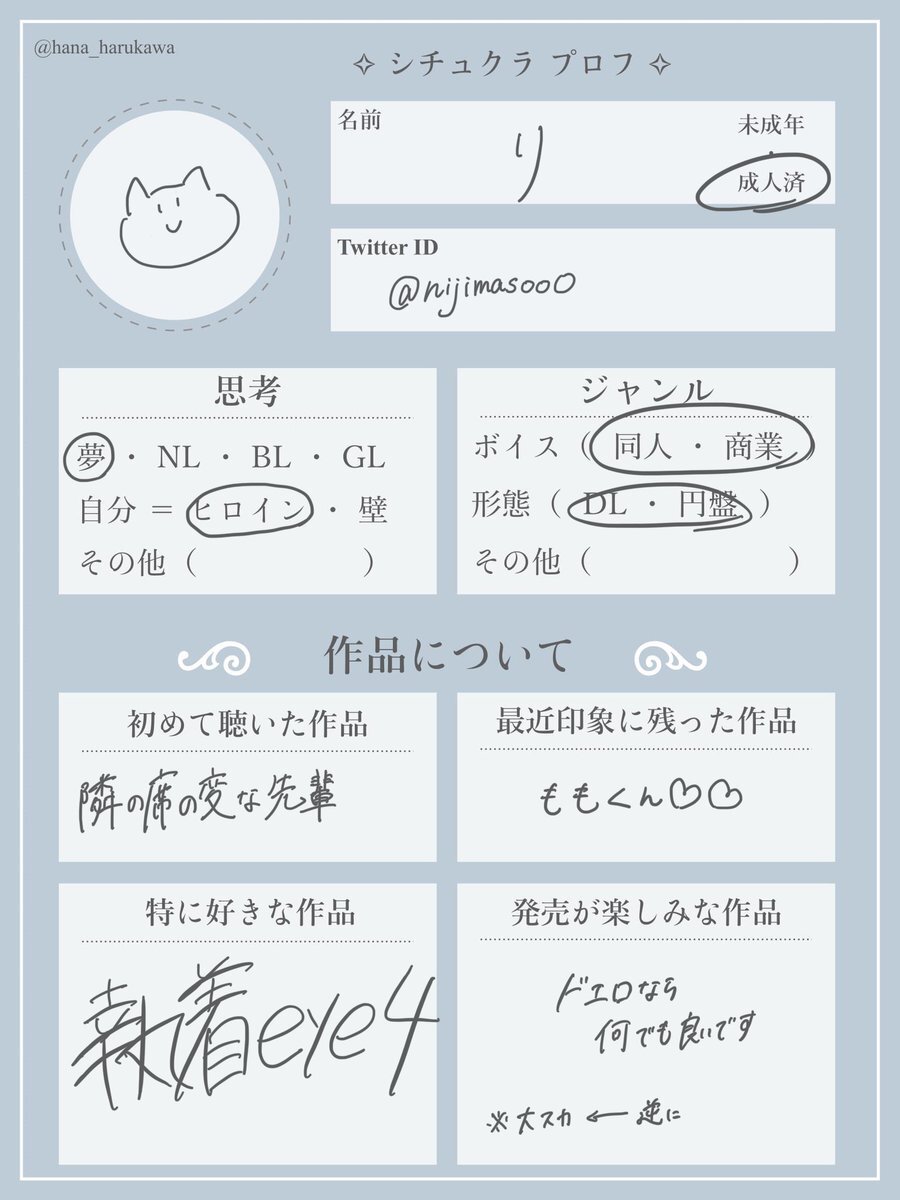 @hana_harukawa
✧ シチュクラ プロフ ✧
名前
り
未成年
・
成人済
Twitter ID
@nijimasooo
思考
夢 ・ NL ・ BL ・ GL
自分 = ヒロイン ・ 壁
その他（ ）
ジャンル
ボイス（ 同人 ・ 商業 ）
形態（ DL ・ 円盤 ）
その他（ ）
作品について
初めて聴いた作品
隣の席の変な先輩
最近印象に残った作品
ももくん♡♡
特に好きな作品
執着eye4
発売が楽しみな作品
ドエロなら
何でも良いです
※大スカ ← 逆に